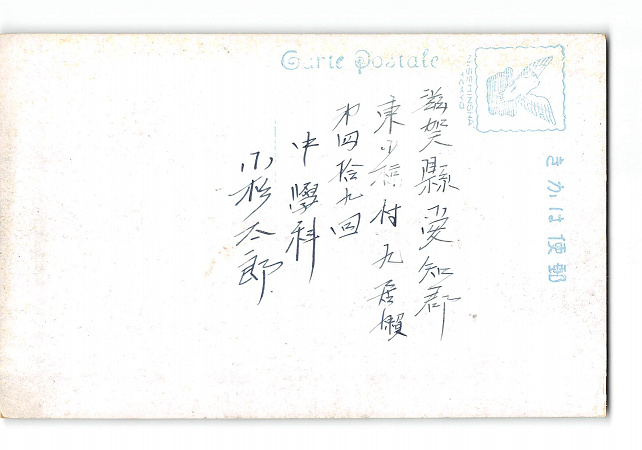 Carte Postale
きかは便郵
滋賀縣愛知郡
東小椋村九居瀬
才四拾九回
中學科
小杉太郎